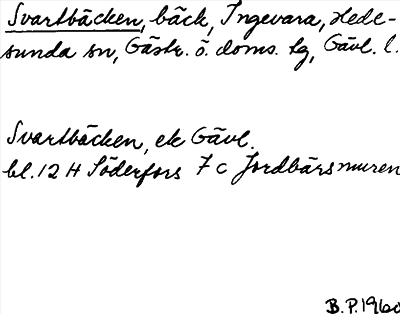 Svartbäcken, bäck, Ingevara, Hede-
sunda sn, Gästr. ö. doms. tg, Gävl. l.
Svartbäcken, ek Gävl.
bl. 12 H Söderfors 7 c Jordbärsmuren
B.P. 1960